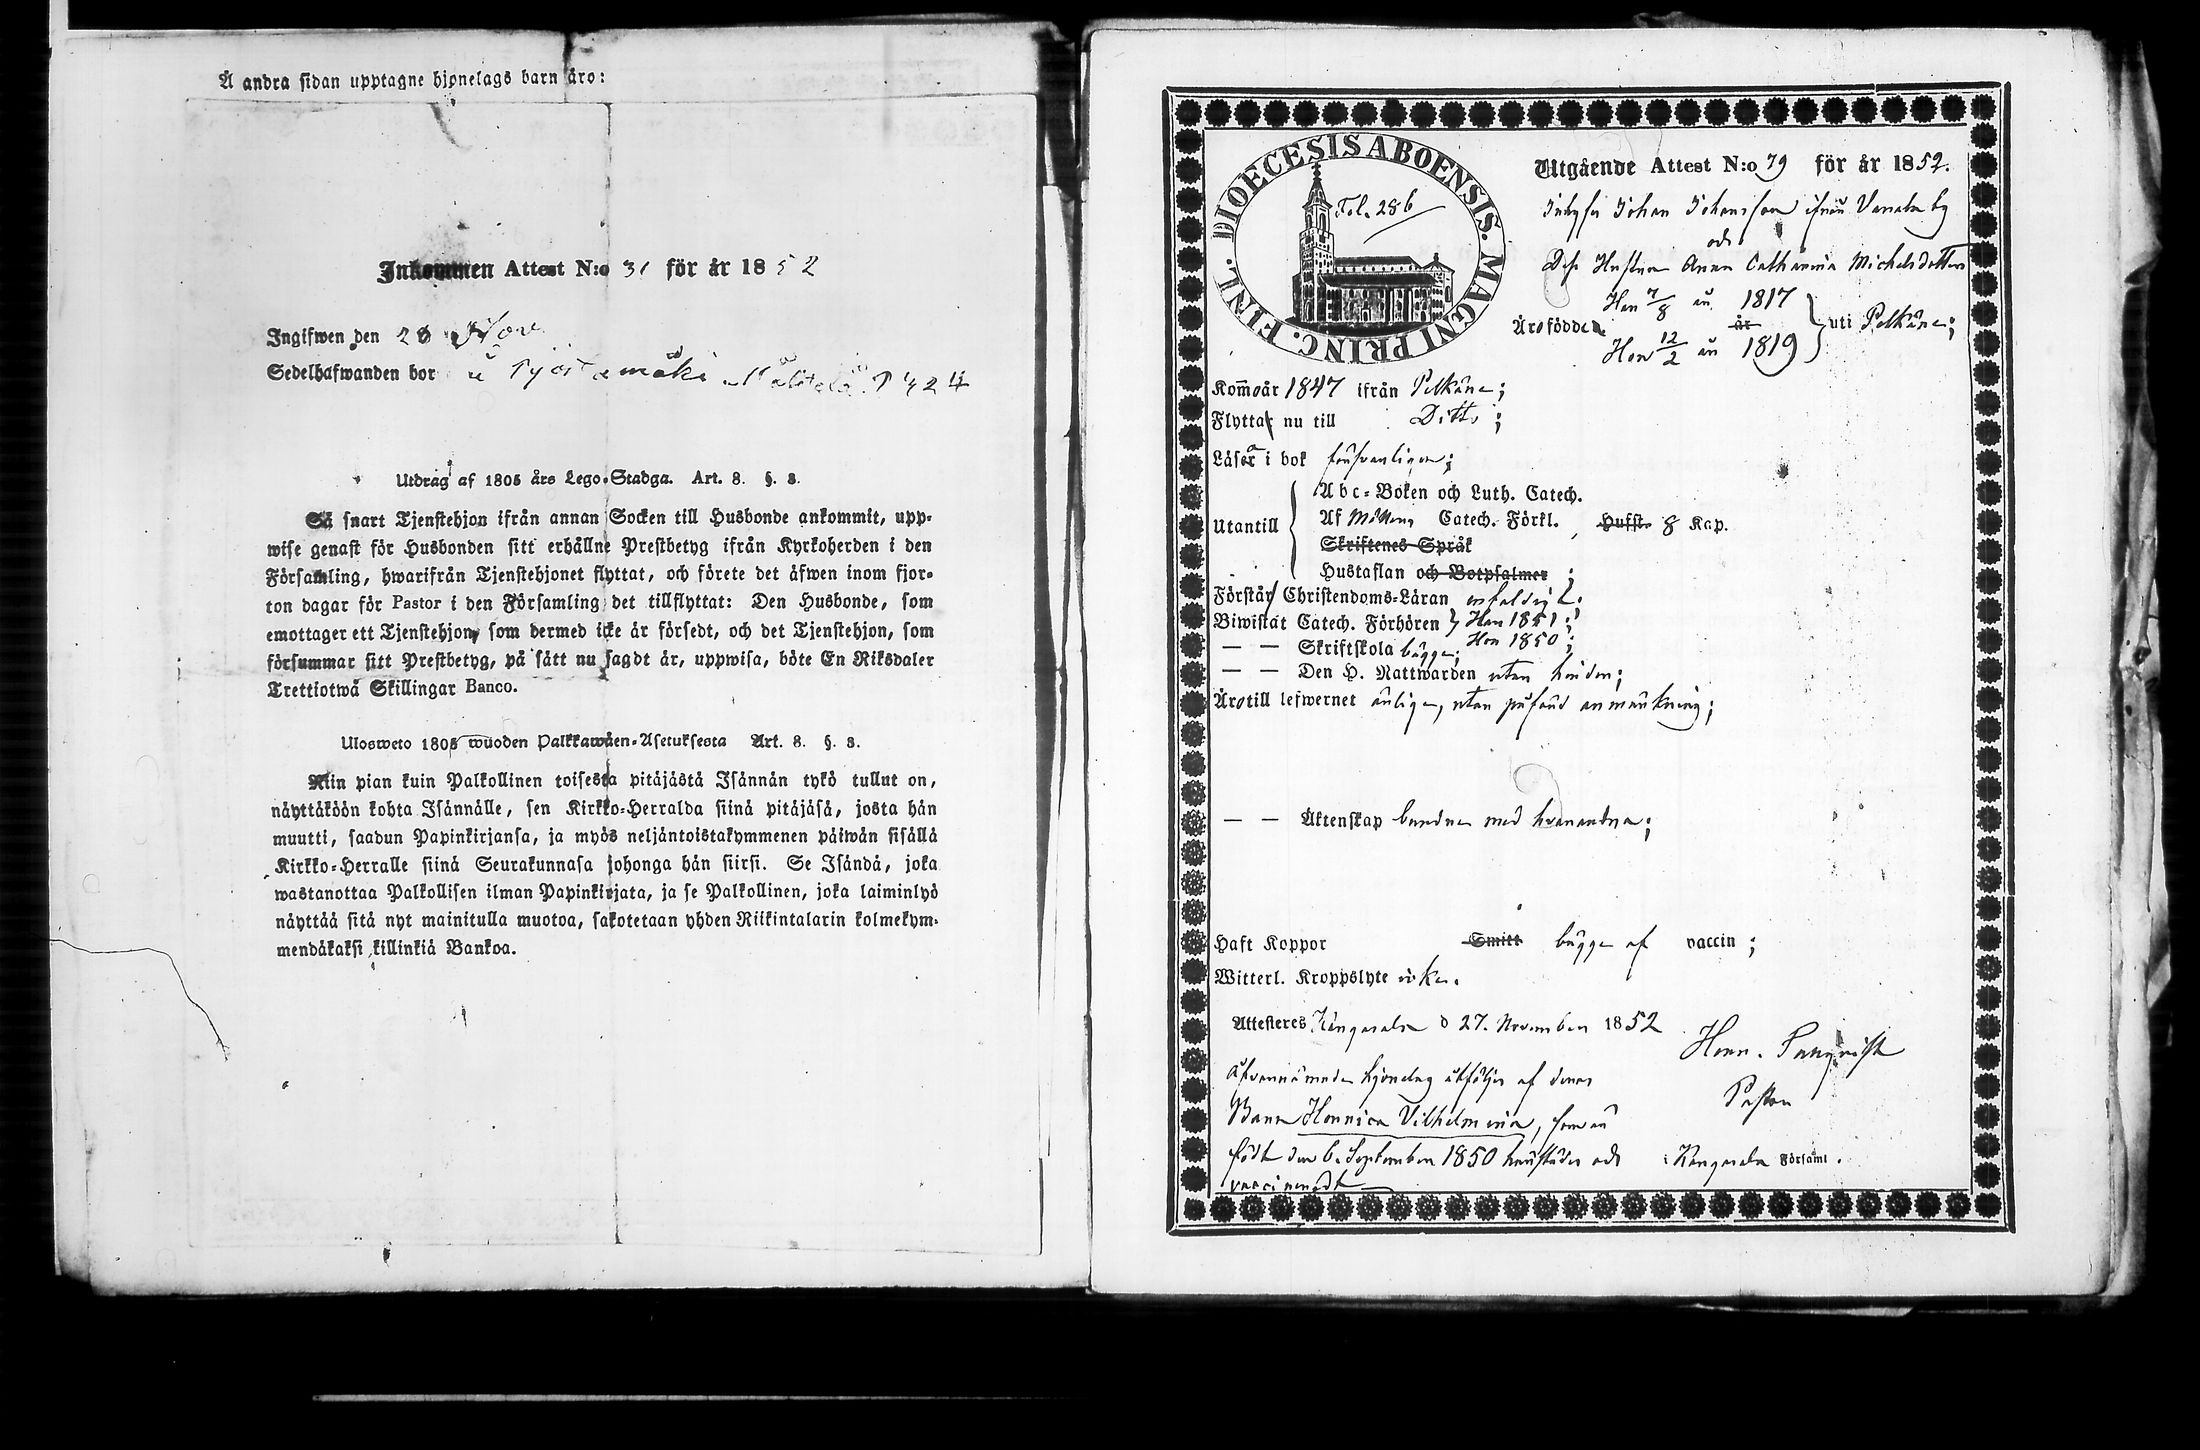 Å andra sidan upptagne hjonelags barn äro:
Inkommen Attest N:o 31 för år 1852
Ingifwen den 28 Nov
Sedelhafwanden bor
Utdrag af 1805 års Lego-Stadga. Art. 8. §. 3.
Så snart Tjenstehjon ifrån annan Socken till Husbonde ankommit, upp-
wise genast för Husbonden sitt erhållne Prestbetyg ifrån Kyrkoherden i den
Församling, hwarifrån Tjenstehjonet flyttat, och förete det äfwen inom fjor-
ton dagar för Pastor i den Församling det tillflyttat: Den Husbonde, som
emottager ett Tjenstehjon, som dermed icke är försedt, och det Tjenstehjon, som
försummar sitt Prestbetyg, på sätt nu sagdt är, uppwisa, böte En Riksdaler
Trettiotwå Skillingar Banco.
Ulosweto 1805 wuoden Palkkawäen-Asetuksesta Art. 8. §. 3.
Niin pian kuin Palkollinen toisesta pitäjästä Isännän tykö tullut on,
näyttäköön kohta Isännälle, sen Kirkko-Herralda siinä pitäjäsä, josta hän
muutti, saadun Papinkirjansa, ja myös neljäntoistakymmenen päiwän sisällä
Kirkko-Herralle siinä Seurakunnasa johonga hän siirsi. Se Isändä, joka
wastanottaa Palkollisen ilman Papinkirjata, ja se Palkollinen, joka laiminlyö
näyttää sitä nyt mainitulla muotoa, sakotetaan yhden Riikintalarin kolmekym-
mendäkaksi killinkiä Bankoa.
DIOECESIS ABOENSIS. MAGNI PRINC. FINL.
Fol. 286
Utgående Attest N:o 79 för år 1852.
Inhyses Johan Johansson ifrån Vanala by
och
Dess Hustru Anna Catharina Michelsdotter
Han 7/8 år 1817
Äro födde år uti Pelkäne;
Hon 12/2 år 1819
Kom̄o år 1847 ifrån Pelkäne;
Flyttar nu till Ditto;
Läsa i bok försvarligen;
Utantill
Abc-Boken och Luth. Catech.
Af Catech. Förkl. Hufst. 8 Kap.
Skriftenes Språk
Hustaflan och Botpsalmer;
Förstår Christendoms-Läran enfaldigt;
Biwistat Catech. Förhören Han 1851;
Hon 1850;
— — Skriftskola bägge;
— — Den H. Nattwarden utan hinder;
Äro till lefwernet ärlige, utan påförd anmärkning;
— — Äktenskap bundne med hvarandra;
Haft Koppor Smitt bägge af vaccin;
Witterl. Kroppslyte icke.
Attesteras Kangasala d 27. November 1852
Henr.
Pastor
Äfvannämnde hjonelag åtföljes af deras
Barn Hennrica Vilhelmina, som är
född den 6. September 1850 och
i Kangasala Församl.
vaccineradt